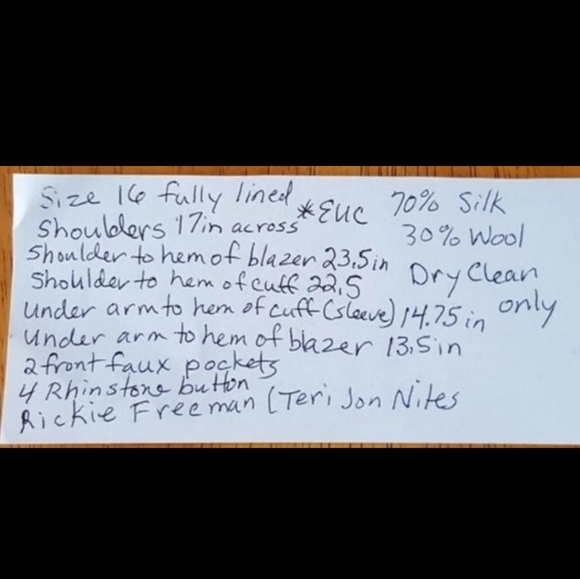 Size 16 fully lined
Shoulders 17in across
*EUC
Shoulder to hem of blazer 23.5in
Shoulder to hem of cuff 22.5
Under arm to hem of cuff (sleeve) 14.75 in
Under arm to hem of blazer 13.5in
2 front faux pockets
4 Rhinstone button
Rickie Freeman (Teri Jon Nites
70% Silk
30% Wool
Dry Clean
only